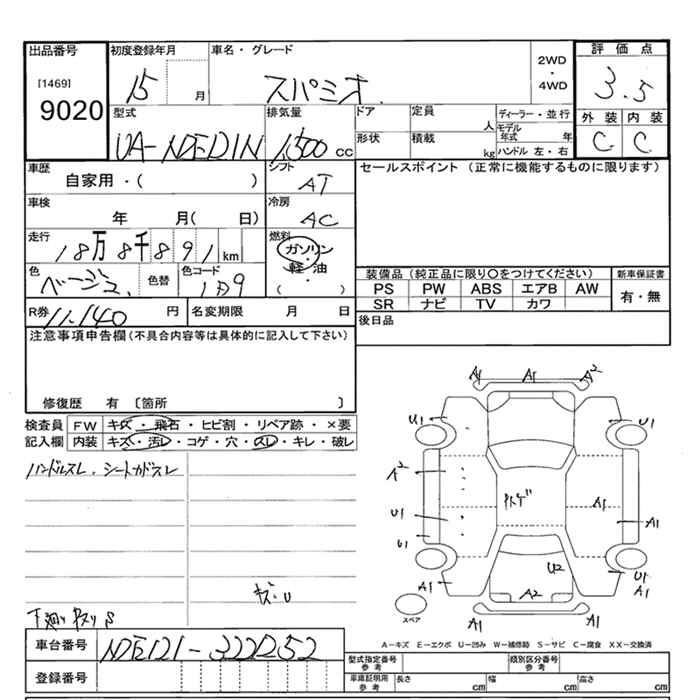 出品番号 初度登録年月 車名・グレード 2WD・4WD 評価点
[1469]
9020
15 月 スパシオ 3.5
型式 排気量 ドア 定員 人 ディーラー・並行 外装 内装
形状 積載 kg モデル年式 年
ハンドル 左・右
1,500 cc C C
車歴 シフト セールスポイント (正常に機能するものに限ります)
自家用・( ) AT
車検 冷房
年 月( 日) AC
走行 燃料
18万8千891km ガソリン・軽油
( )
色 色替 色コード
ベージュ
装備品 (純正品に限り○をつけてください) 新車保証書
PS PW ABS エアB AW 有・無
SR ナビ TV カワ
R券 11,140 円 名変期限 月 日 後日品
注意事項申告欄(不具合内容等は具体的に記入して下さい)
修復歴 有 〔箇所 〕
検査員 FW キズ・飛石・ヒビ割・リペア跡・×要
記入欄 内装 キズ・汚レ・コゲ・穴・スレ・キレ・破レ
ハンドルスレ、シートカドスレ
A1 A1 A2
U1 U1
A2
U1 A1 A1
U1
A1 U2 U1
A2 A1
スペア A1 A1
キズ・U
下廻りサビ S
A-キズ E-エクボ U-凹み W-補修跡 S-サビ C-腐食 XX-交換済
車台番号
型式指定番号 参考 類別区分番号 参考
登録番号
車庫証明用 参考 長さ cm 幅 cm 高さ cm